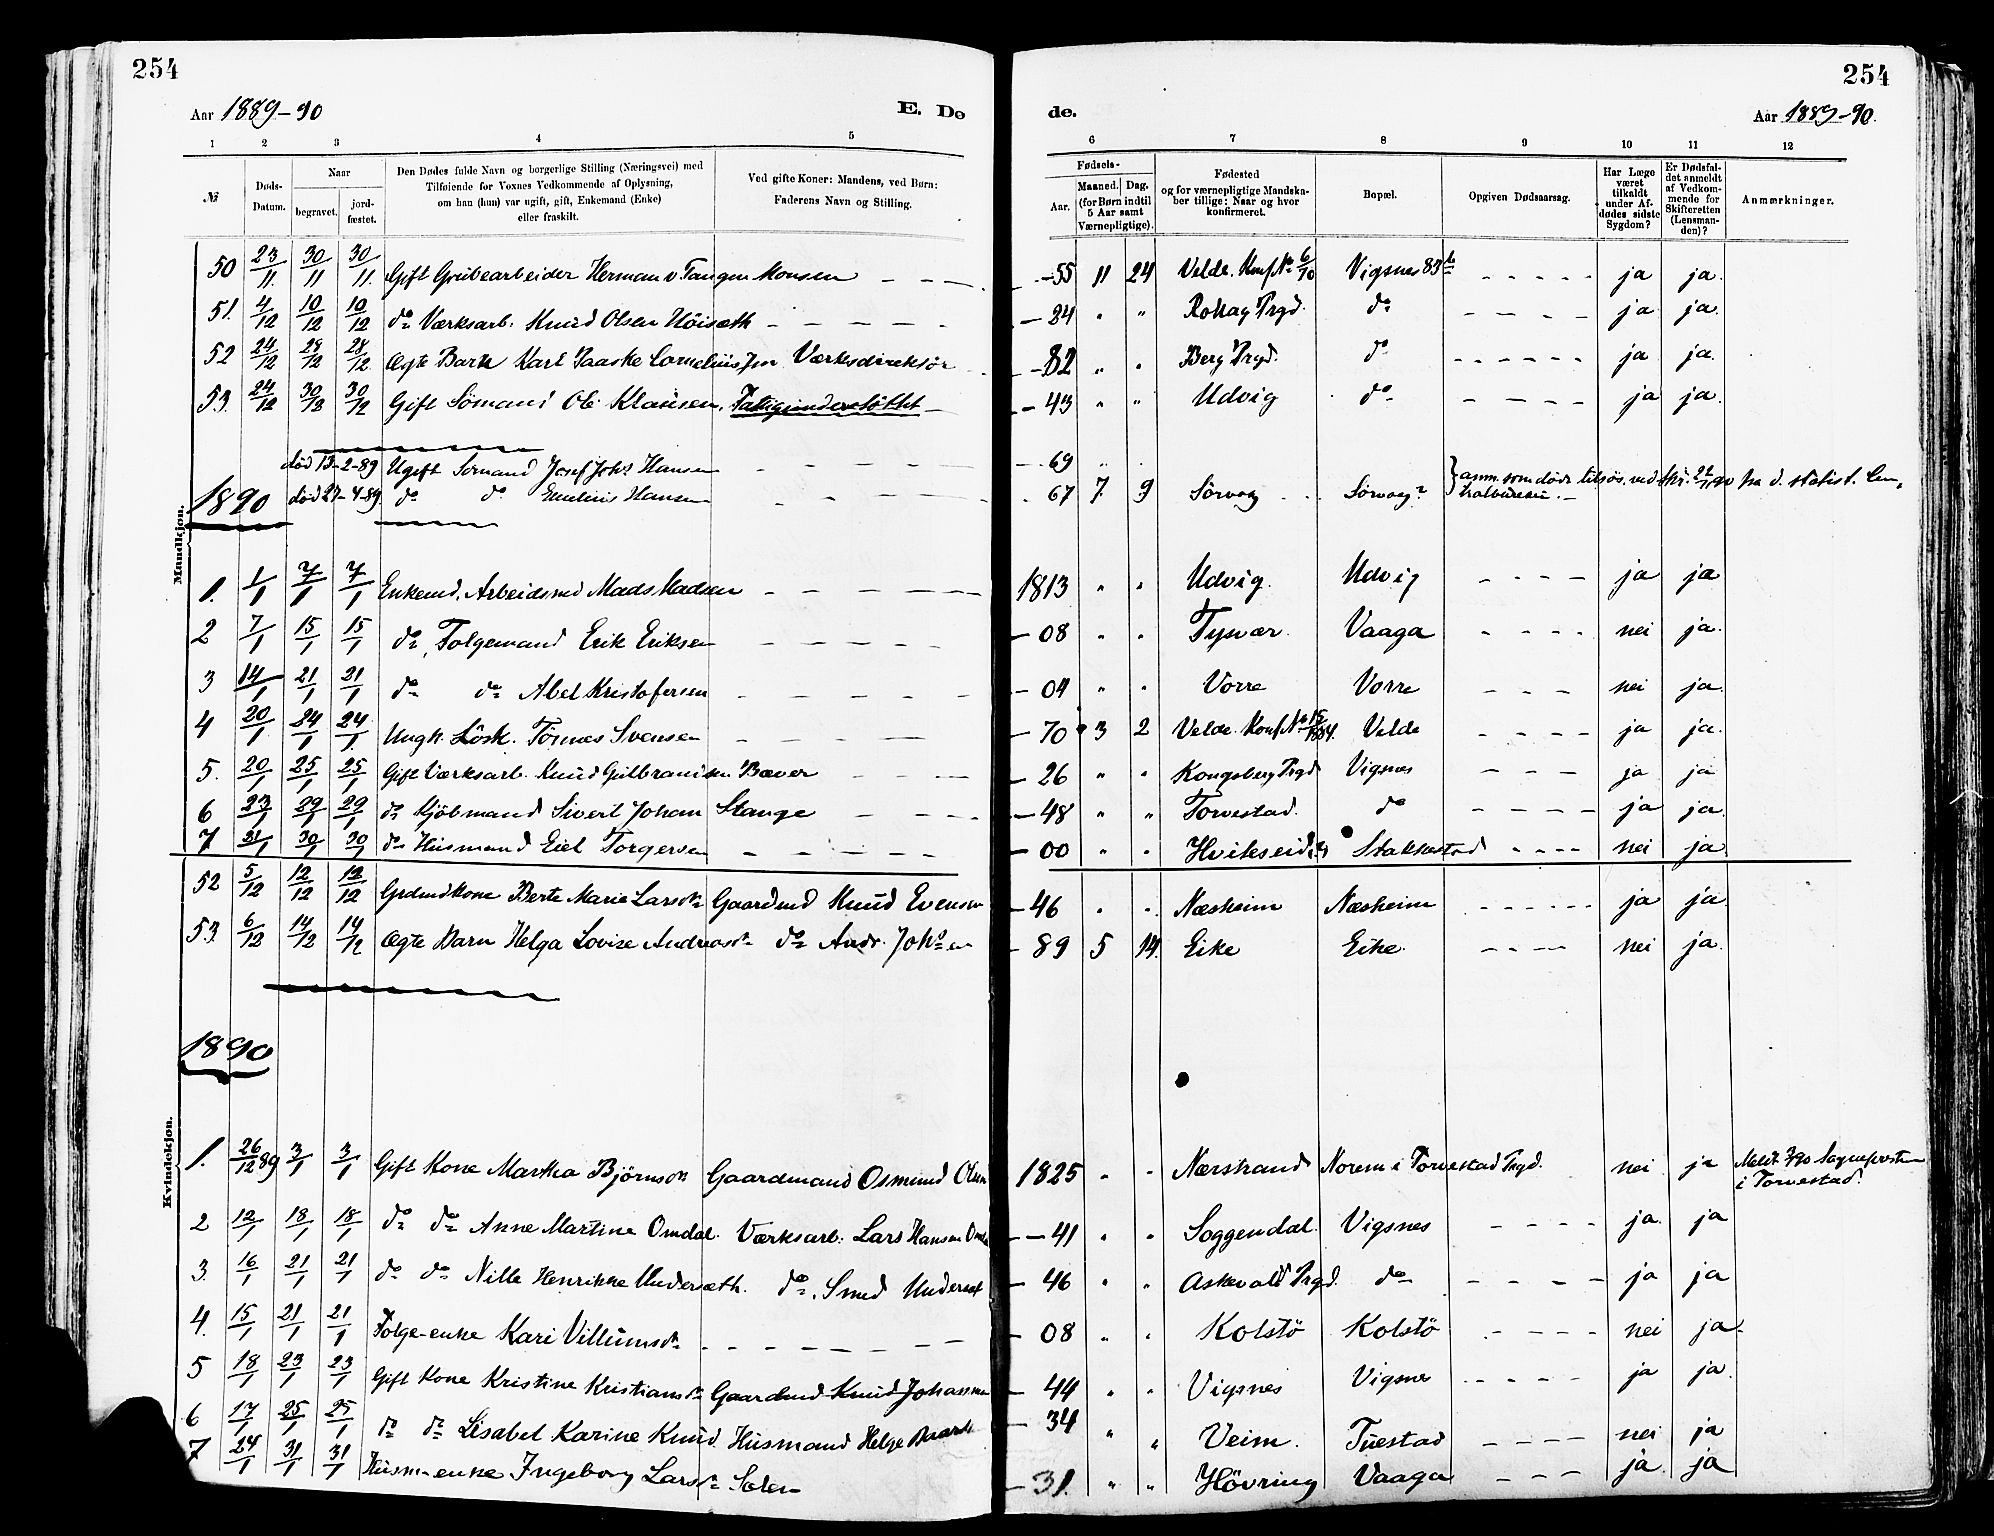 254
254
Aar 1889-90
E. Dø
de.
Aar 1889-90.
1 2 3 4 5
6 7 8 9 10 11 12
№
Døds-
Datum.
Naar
begravet.
jord-
fæstet.
Den Dødes fulde Navn og borgerlige Stilling (Næringsvei) med
Tilføiende for Voxnes Vedkommende af Oplysning,
om han (hun) var ugift, gift, Enkemand (Enke)
eller fraskilt.
Ved gifte Koner: Mandens, ved Børn:
Faderens Navn og Stilling.
Fødsels-
Aar.
Maaned. Dag.
(for Børn indtil
5 Aar samt
Værnepligtige).
Fødested
og for værnepligtige Mandska-
ber tillige: Naar og hvor
konfirmeret.
Bopæl.
Opgiven Dødsaarsag.
Har Læge
været
tilkaldt
under Af-
dødes sidste
Sygdom?
Er Dødsfal-
det anmeldt
af Vedkom-
mende for
Skifteretten
(Lensman-
den)?
Anmærkninger.
Mandkjøn.
50 23/11. 30/11 30/11. Gift Grubearbeider Herman v. Tangen Monsen - - - -55 11 24 Velde. Konf. № 6/70 Vigsnes - - - - - ja ja.
51. 4/12 10/12 10/12 do Værksarb. Knud Olsen Höisæth - - - - - - 84 " " Rollag Prgd. do - - - - ja ja.
52 24/12 28/12 28/12 Ægte Barn Karl Paaske Corneliusen Værksdirektör - 82 " " Berg Prgd. do - - - - - - ja ja.
53. 24/12 30/12 30/12 Gift Sömand Ole Klausen. Fattigunderstöttet - - 43 " " Udvig do - - - - - ja ja.
død 13-2-89 Ugift Sömand Josef Johs Hansen - - - - - - 69 "
1890 død 27-4-89. do do Emelius Hansen - - - - - 67 7. 9 Sörvag - Sörvag? anm. som döde tilsös. ved fra d. statist. Cen-
tralbureau. -
1. 1/1 7/1 7/1 Enkemd. Arbeidsmd Mads Madsen - - - - - 1813 " " Udvig. Udvig - - - - ja ja
2 7/1 15/1 15/1 do, Folgemand Erik Eriksen - - - - - - 08 " " Tysvær. Vaaga - - - - nei ja.
3 14/1 21/1 21/1 do do Abel Kristofersen - - - - - - 04 " " Vorre Vorre - - - nei ja.
4 20/1 24/1 24/1. Ungk. Lösk. Tönnes Svensen - - - - - 70 3 2 Velde. Konf. № 15/1884. Velde - - - - ja ja.
5. 20/1 25/1 25/1 Gift Værksarb. Knud Gulbrandsen Bæver - - - - 26 " " Kongsberg Prgd Vigsnes - - - ja ja
6 23/1 29/1 29/1 do Kjöbmand Sivert Johan Stange - - - - - 48 " " Torvestad. do - - - - ja ja.
7 21/1 30/1 30/1 do Husmand Eiel Torgersen - - - - - - 00 " " Hvitseid Stakkestad - - - - nei ja.
52 5/12 12/12 12/12 Grdmdkone Berte Marie Larsdr Gaardmd Knud Evensen - 46 " " Næsheim Næsheim - - - - - - ja ja.
53. 6/12 14/12 14/12 Ægte Barn Helga Lovise Andreasdr do Andr. Johsen - 89 5 14. Eike Eike. - - - - nei ja.
1890
Kvindekjøn.
1. 26/12 89 3/1 3/1 Gift Kone Martha Björnsdr Gaardmand Osmund Olsen 1825 " " Nærstrand Norem i Torvestad Prgd. nei ja Meldt 3/90 Sognepresten
i Torvestad.
2 12/1 18/1 18/1 do do Anne Martine Omdal. Værksarb. Lars Hansen Omdal - - 41 " " Soggendal. Vigsnes - - - - ja. ja
3. 16/1 21/1 21/1 do do Nille Henrikke Undersæth. do. Smed Undersæt - 46 " " Askevold Prgd. do - - - - ja ja
4. 15/1 21/1 21/1 Folge-enke Kari Villumsdr - - - - - - - 08 " " Kolstö Kolstö - - - - nei ja.
5 18/1 23/1 23/1 Gift Kone Kristine Kristiansdr Gaardmd Knud Johannsen - 44 " " Vigsnes Vigsnes - - - - - ja ja.
6 17/1 25/1 25/1 do do Lisabel Karine Knud. Husmand Helge - 34 " " Veim. Tuestad - - - - nei ja
7 24/1 31/1 31/1 Husm-enke Ingeborg Larsdr Solen - 31. " " Hövring Vaaga - - - ja. ja